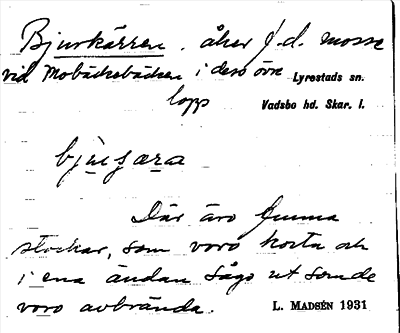 Bjurkärren. åker f.d. mosse
vid Mobäckebäcken i dess övre Lyrestads sn.
lopp Vadsbo hd. Skar. l.
Där äro funna
stockar, som voro korta och
i ena ändan sågo ut som de
voro avbrända. L. MADSÉN 1931